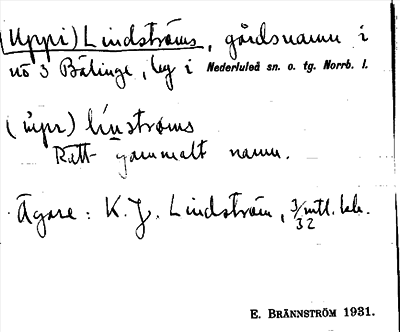 (Uppi) Lindströms, gårdsnamn i
nö 3 Bälinge, by i Nederluleå sn. o. tg. Norrb. l.
(ùpı) línströms
Rätt gammalt namn.
Ägare: K. J. Lindström, 3/32 mtl.
E. BRÄNNSTRÖM 1931.